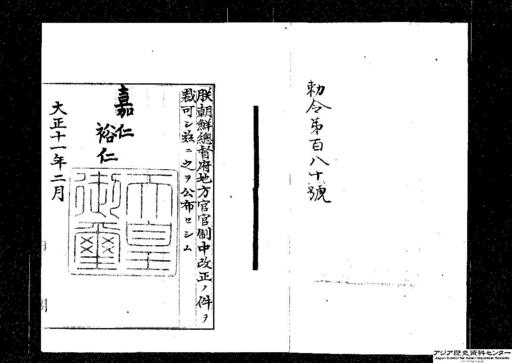 勅令第百八十號
朕朝鮮總督府地方官官制中改正ノ件ヲ
裁可シ茲ニ之ヲ公布セシム
嘉仁
裕仁
天皇御璽
大正十一年二月
アジア歴史資料センター
Japan Center for Asian Historical Records